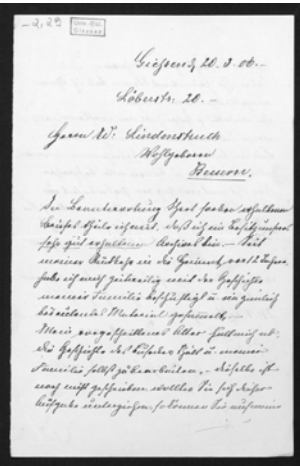 -2,29
Univ.-Bibl.
Giessen
Giessen, 20. 3. 06.-
Löberstr. 20.-
Herrn W. Lindenstruth
Wohlgeboren
Beuern.
In Beantwortung Ihres soeben erhaltenen
Briefes theile ich mit, daß ich im Besitz unseres
sehr gut erhaltenen Archives bin. - Seit
meiner Rückkehr in die Heimat vor 12 Jahren
habe ich mich zeitweilig mit der Geschichte
meiner Familie beschäftigt u. ein ziemlich
bedeutendes Material gesammelt. -
Mein vorgeschrittenes Alter hält mich ab,
die Geschichte des Busecker Thals u. meiner
Familie selbst zu bearbeiten, - dieselbe ist
noch nicht geschrieben. Wollten Sie sich dieser
Aufgabe unterziehen, so können Sie auf meine